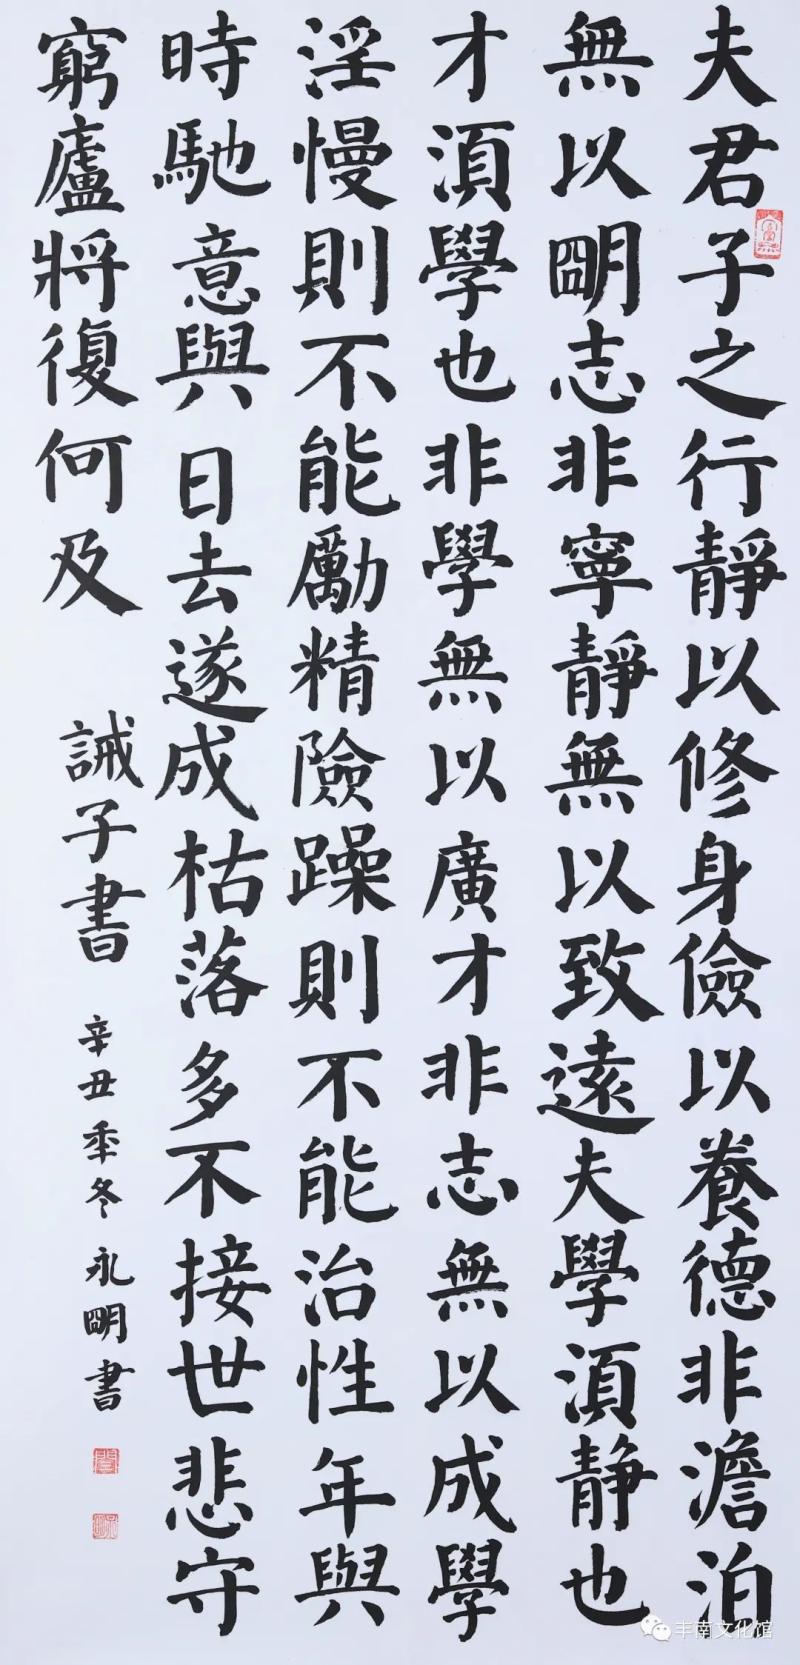 夫君子之行靜以修身儉以養德非澹泊
無以明志非寧靜無以致遠夫學須静也
才須學也非學無以廣才非志無以成學
淫慢則不能勵精險躁則不能治性年與
時馳意與日去遂成枯落多不接世悲守
窮廬將復何及
誡子書
辛丑季冬永明書
丰南文化馆